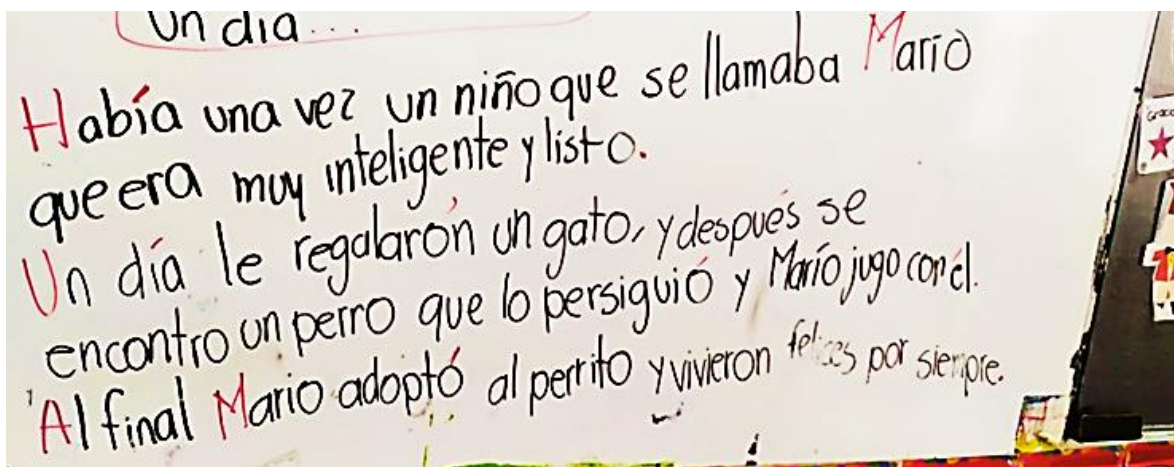 Un día...
Había una vez un niño que se llamaba Mario
que era muy inteligente y listo.
Un día le regalarón un gato, y después se
encontro un perro que lo persiguió y Marío jugo con él.
Al final Mario adoptó al perrito y vivieron felices por siempre.